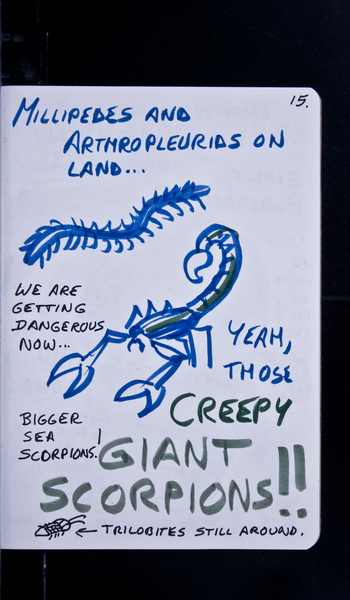 15.
MILLIPEDES AND
ARTHROPLEURIDS ON
LAND...
WE ARE
GETTING
DANGEROUS
NOW...
YEAH,
THOSE
CREEPY
BIGGER
SEA
SCORPIONS!
GIANT
SCORPIONS!!
← TRILOBITES STILL AROUND.